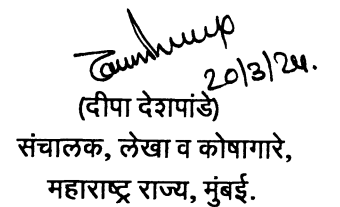 20/3/24.
(दीपा देशपांडे)
संचालक, लेखा व कोषागारे,
महाराष्ट्र राज्य, मुंबई.